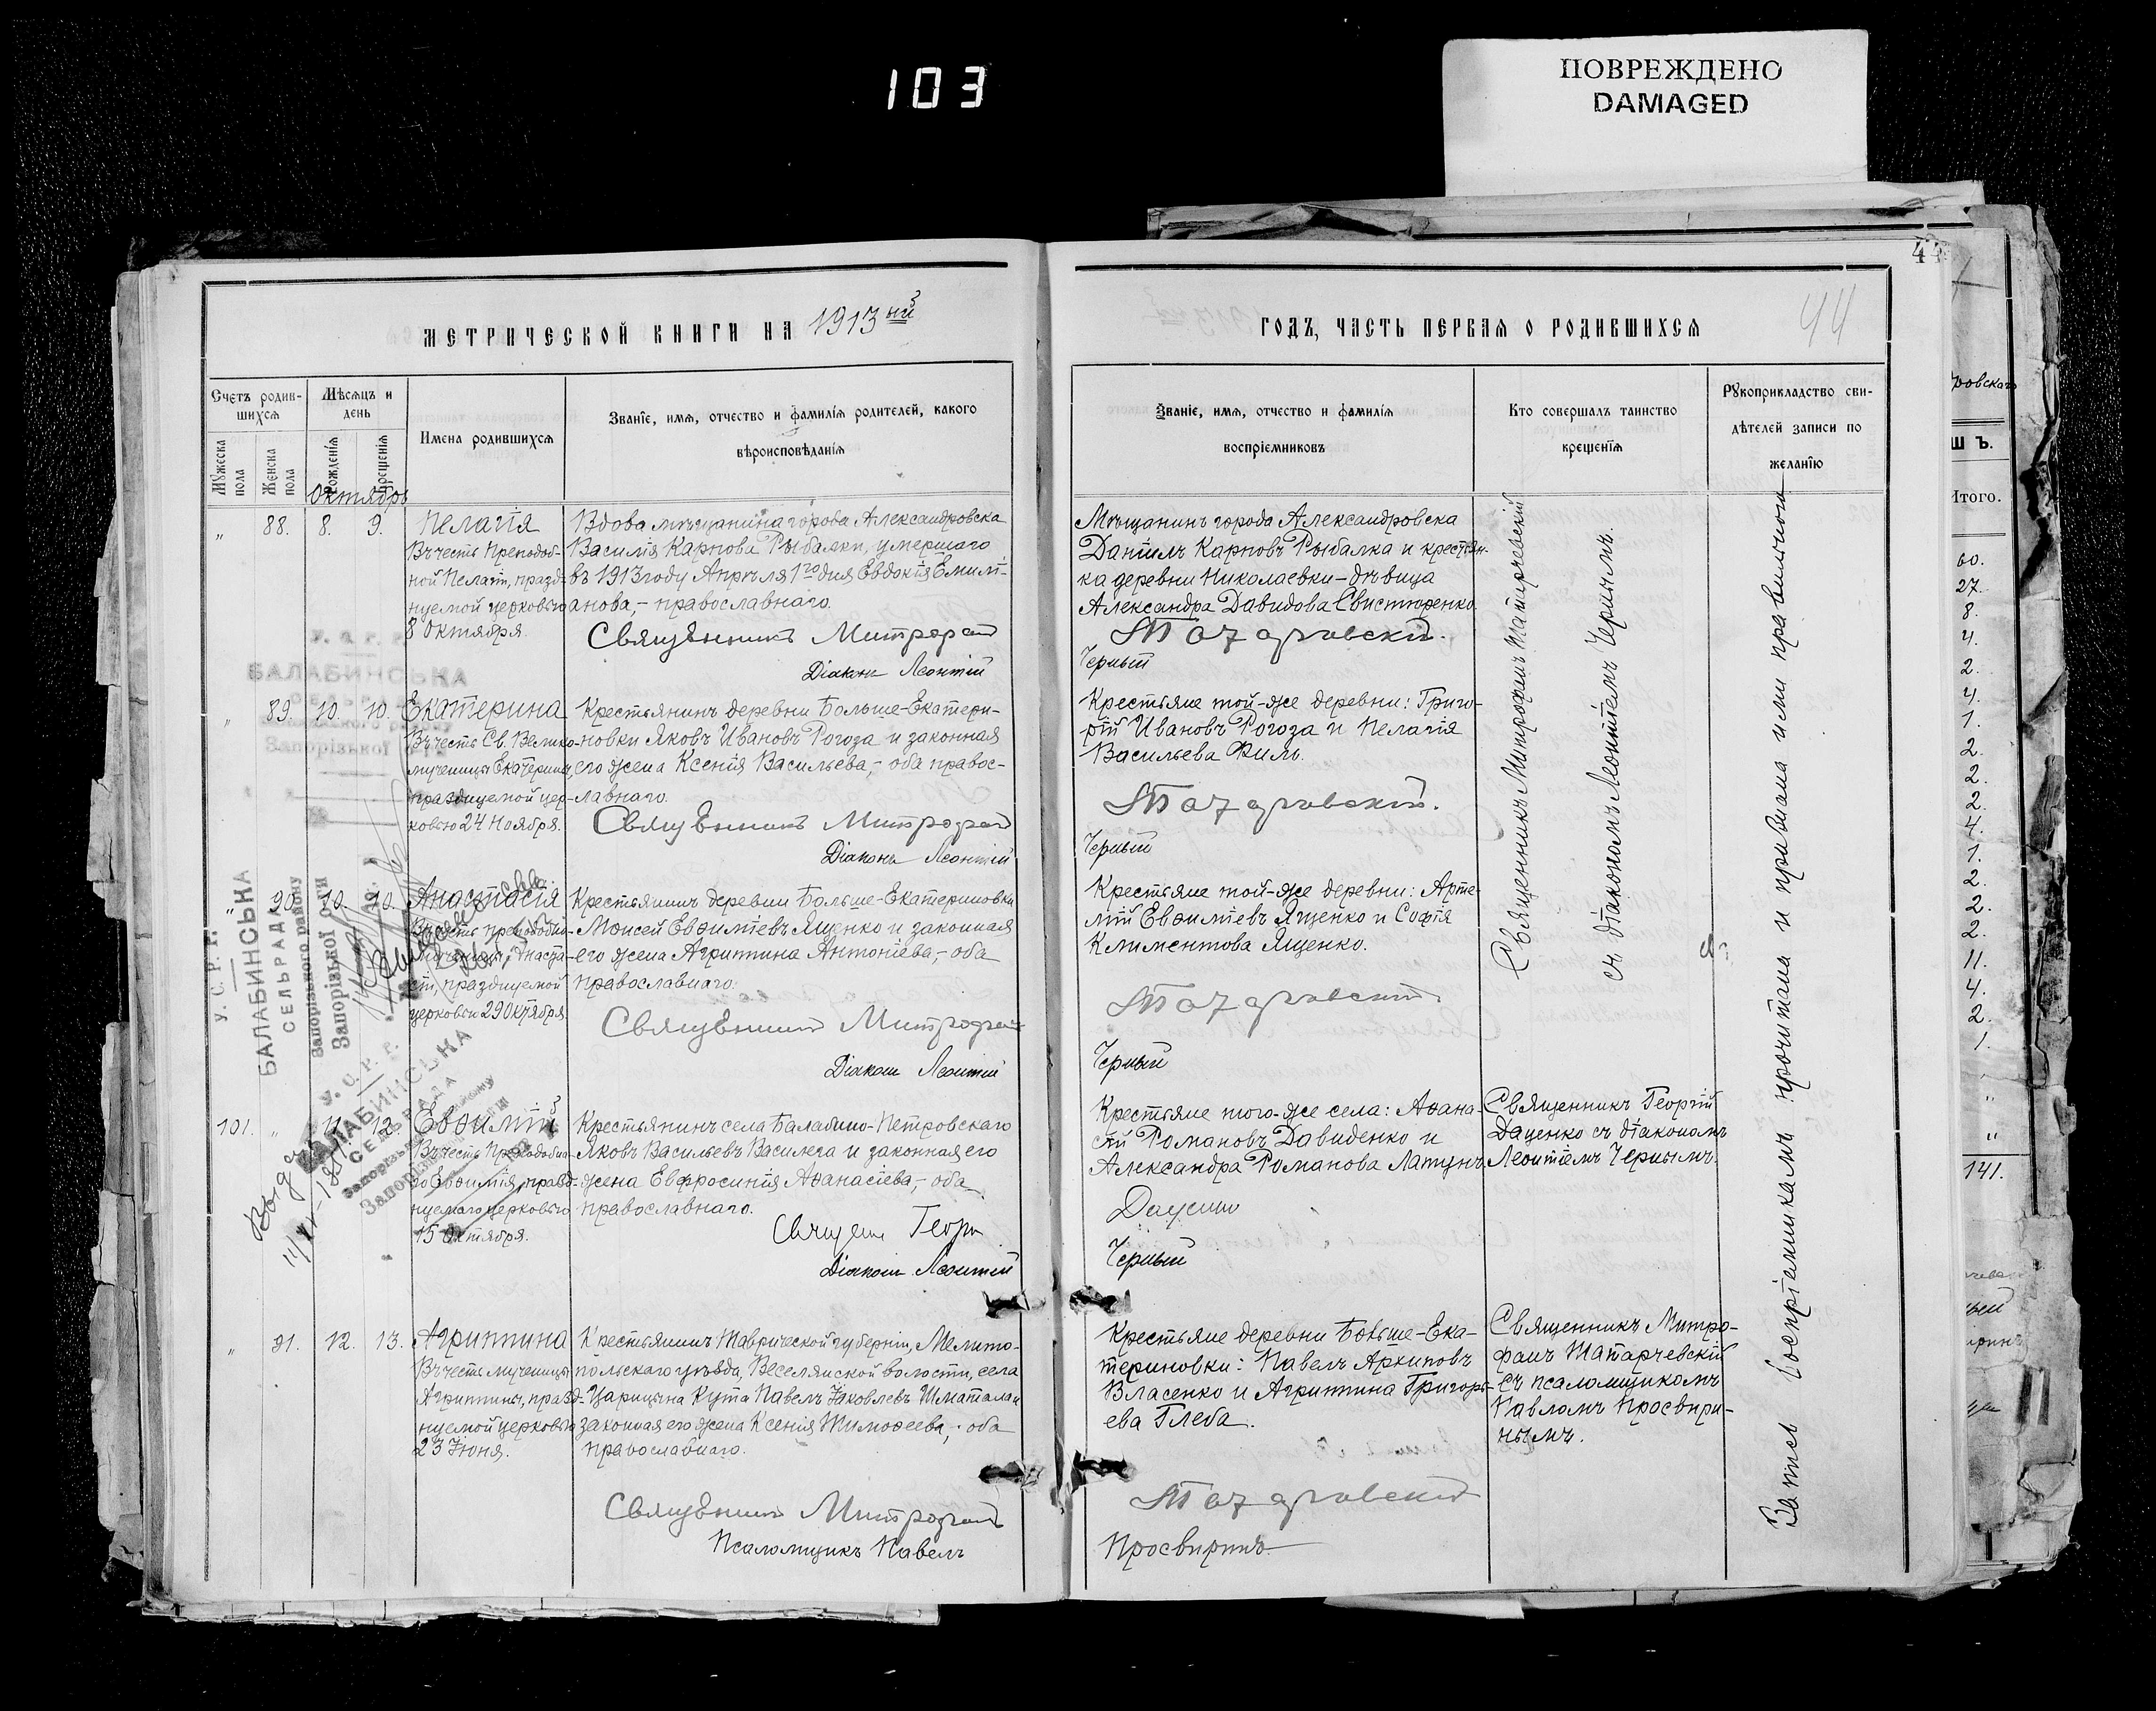 103
ПОВРЕЖДЕНО
DAMAGED
44
44
МЕТРИЧЕСКОЙ КНИГИ НА 1913ый
ГОДЪ, ЧАСТЬ ПЕРВАЯ О РОДИВШИХСЯ
Счетъ родив-
шихся
Мѣсяцъ и
день
Мужеска
пола
Женска
пола
Рожденія
Крещенія
Имена родившихся
Званіе, имя, отчество и фамилія родителей, какого
вѣроисповѣданія
Званіе, имя, отчество и фамилія
воспріемниковъ
Кто совершалъ таинство
крещенія
Рукоприкладство сви-
дѣтелей записи по
желанію
Октябрь
„ 88. 8. 9.
Пелагія
Въ честь Преподоб-
ной Пелагіи, празд-
нуемой церковью
8 Октября.
Вдова мѣщанина города Александровска
Василія Карпова Рыбалки, умершаго
въ 1913 году Апрѣля 1го дня Евдокія Емилі-
анова,- православнаго.
Священникъ Митрофанъ
Діаконъ Леонтій
Мѣщанинъ города Александровска
Даніилъ Карповъ Рыбалка и крестьян-
ка деревни Николаевки-дѣвица
Александра Давидова Свистюренко.
Татарчевскій.
Черный
Священникъ Митрофанъ Татарчевскій
съ діакономъ Леонтіемъ Чернымъ.
„ 89. 10. 10.
Екатерина
Въ честь Св. Велико-
мученицы Екатерины,
празднуемой цер-
ковью 24 Ноября.
Крестьянинъ деревни Больше-Екатери-
новки Яковъ Ивановъ Рогоза и законная
его жена Ксенія Васильева,- оба правос-
лавнаго.
Священникъ Митрофанъ
Діаконъ Леонтій
Крестьяне той-же деревни: Григо-
рій Ивановъ Рогоза и Пелагія
Васильева Филь.
Татарчевскій.
Черный
„ 90. 10. 10.
Анастасія
Въ честь преподобно-
мученицы Анаста-
сіи, празднуемой
церковью 29 Октября.
Крестьянинъ деревни Больше-Екатериновки
Моисей Евѳиміевъ Ященко и законная
его жена Агриппина Антоніева,- оба
православнаго.
Священникъ Митрофанъ
Діаконъ Леонтій
Крестьяне той-же деревни: Арте-
мій Евѳиміевъ Ященко и Софія
Климентова Ященко.
Татарчевскій
Черный
101. „ 11. 12.
Евѳимій
Въ честь Преподобна-
го Евѳимія, празд-
нуемаго церковью
15 Октября.
Крестьянинъ села Балабино-Петровскаго
Яковъ Васильевъ Василега и законная его
жена Евфросинія Аѳанасіева,- оба
православнаго.
Діаконъ Леонтій
Крестьяне того-же села: Аѳана-
сій Романовъ Давиденко и
Александра Романова Латунъ.
Даценко
Черный
Священникъ Георгій
Даценко съ діакономъ
Леонтіемъ Чернымъ.
„ 91. 12. 13.
Агриппина
Въ честь мученицы
Агриппины, празд-
нуемой церковью
23 Іюня.
Крестьянинъ Таврической губерніи, Мелито-
польскаго уѣзда, Веселянской волости, села
Царицына Кута Павелъ Яковлевъ Шматала и
законная его жена Ксенія Тимоѳеева,- оба
православнаго.
Священникъ Митрофанъ
Псаломщикъ Павелъ
Крестьяне деревни Больше-Ека-
териновки: Павелъ Архиповъ
Власенко и Агриппина Григорь-
ева Глеба.
Татарчевскій
Просвиринъ
Священникъ Митро-
фанъ Татарчевскій
съ псаломщикомъ
Павломъ Просвири-
нымъ.
Запись воспріемникамъ прочитана и признана ими правильною
У. С. Р. Р.
БАЛАБИНСЬКА
СЕЛЬРАДА
Запорізького району
Запорізької
У. С. Р. Р.
БАЛАБИНСЬКА
СЕЛЬРАДА
Запорізького району
Запорізької
У. С. Р. Р.
БАЛАБИНСЬКА
СЕЛЬРАДА
ровскаго
Ш Ъ.
Итого.
60.
27.
8.
4.
2.
4.
1.
2.
2.
2.
4.
1.
2.
2.
2.
11.
4.
2.
1.
„
„
141.